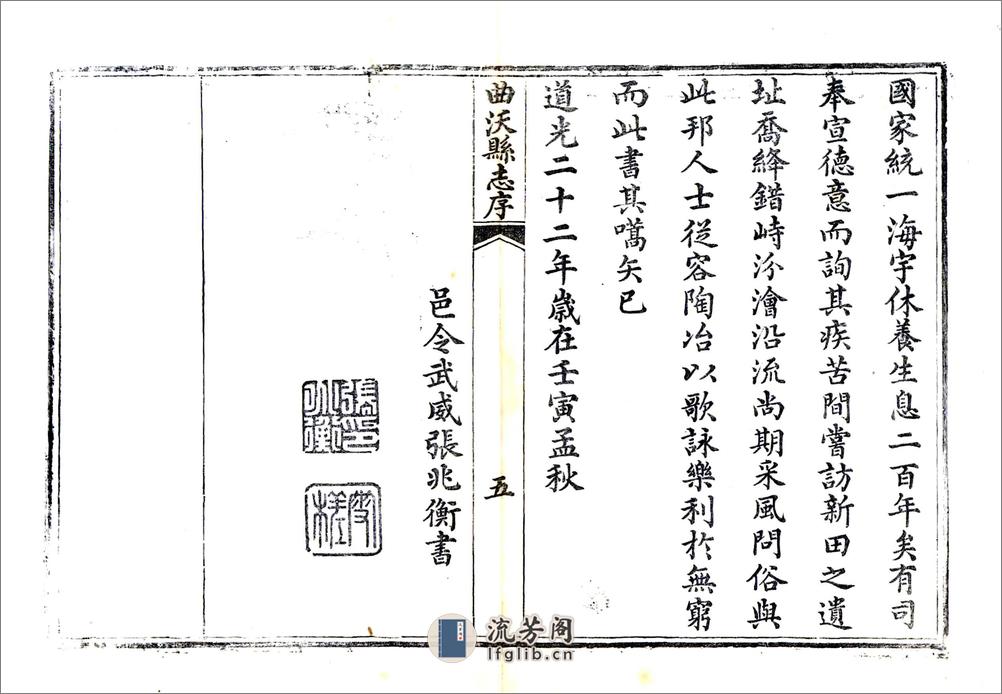 國家統一海宇休養生息二百年矣有司
奉宣德意而詢其疾苦間嘗訪新田之遺
址喬絳錯峙汾澮沿流尚期采風問俗與
此邦人士從容陶冶以歌詠樂利於無窮
而此書其嚆矢已
道光二十二年歲在壬寅孟秋
曲沃縣志序
五
邑令武威張兆衡書
張兆衡印
流芳阁
lfglib.cn